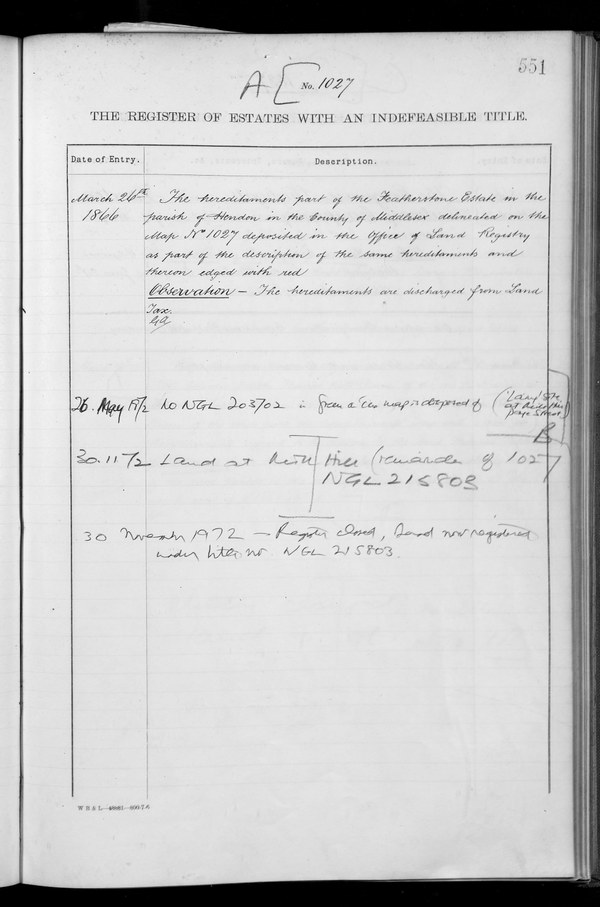 551
A [ No. 1027
THE REGISTER OF ESTATES WITH AN INDEFEASIBLE TITLE.
Date of Entry. Description.
March 26th The hereditaments part of the Featherstone Estate in the
1866 parish of Hendon in the County of Middlesex delineated on the
Map No 1027 deposited in the Office of Land Registry
as part of the description of the same hereditaments and
thereon edged with red
Observation – The hereditaments are discharged from Land
Tax.
26. May 1972 to NGL 203702 green on map is disposed of (Land
at
B
30.11 72 Land at Mill Hill (remainder of 1027
NGL 215803
30 November 1972 – Register closed, Land now registered
under title no NGL 215803.
W B & L